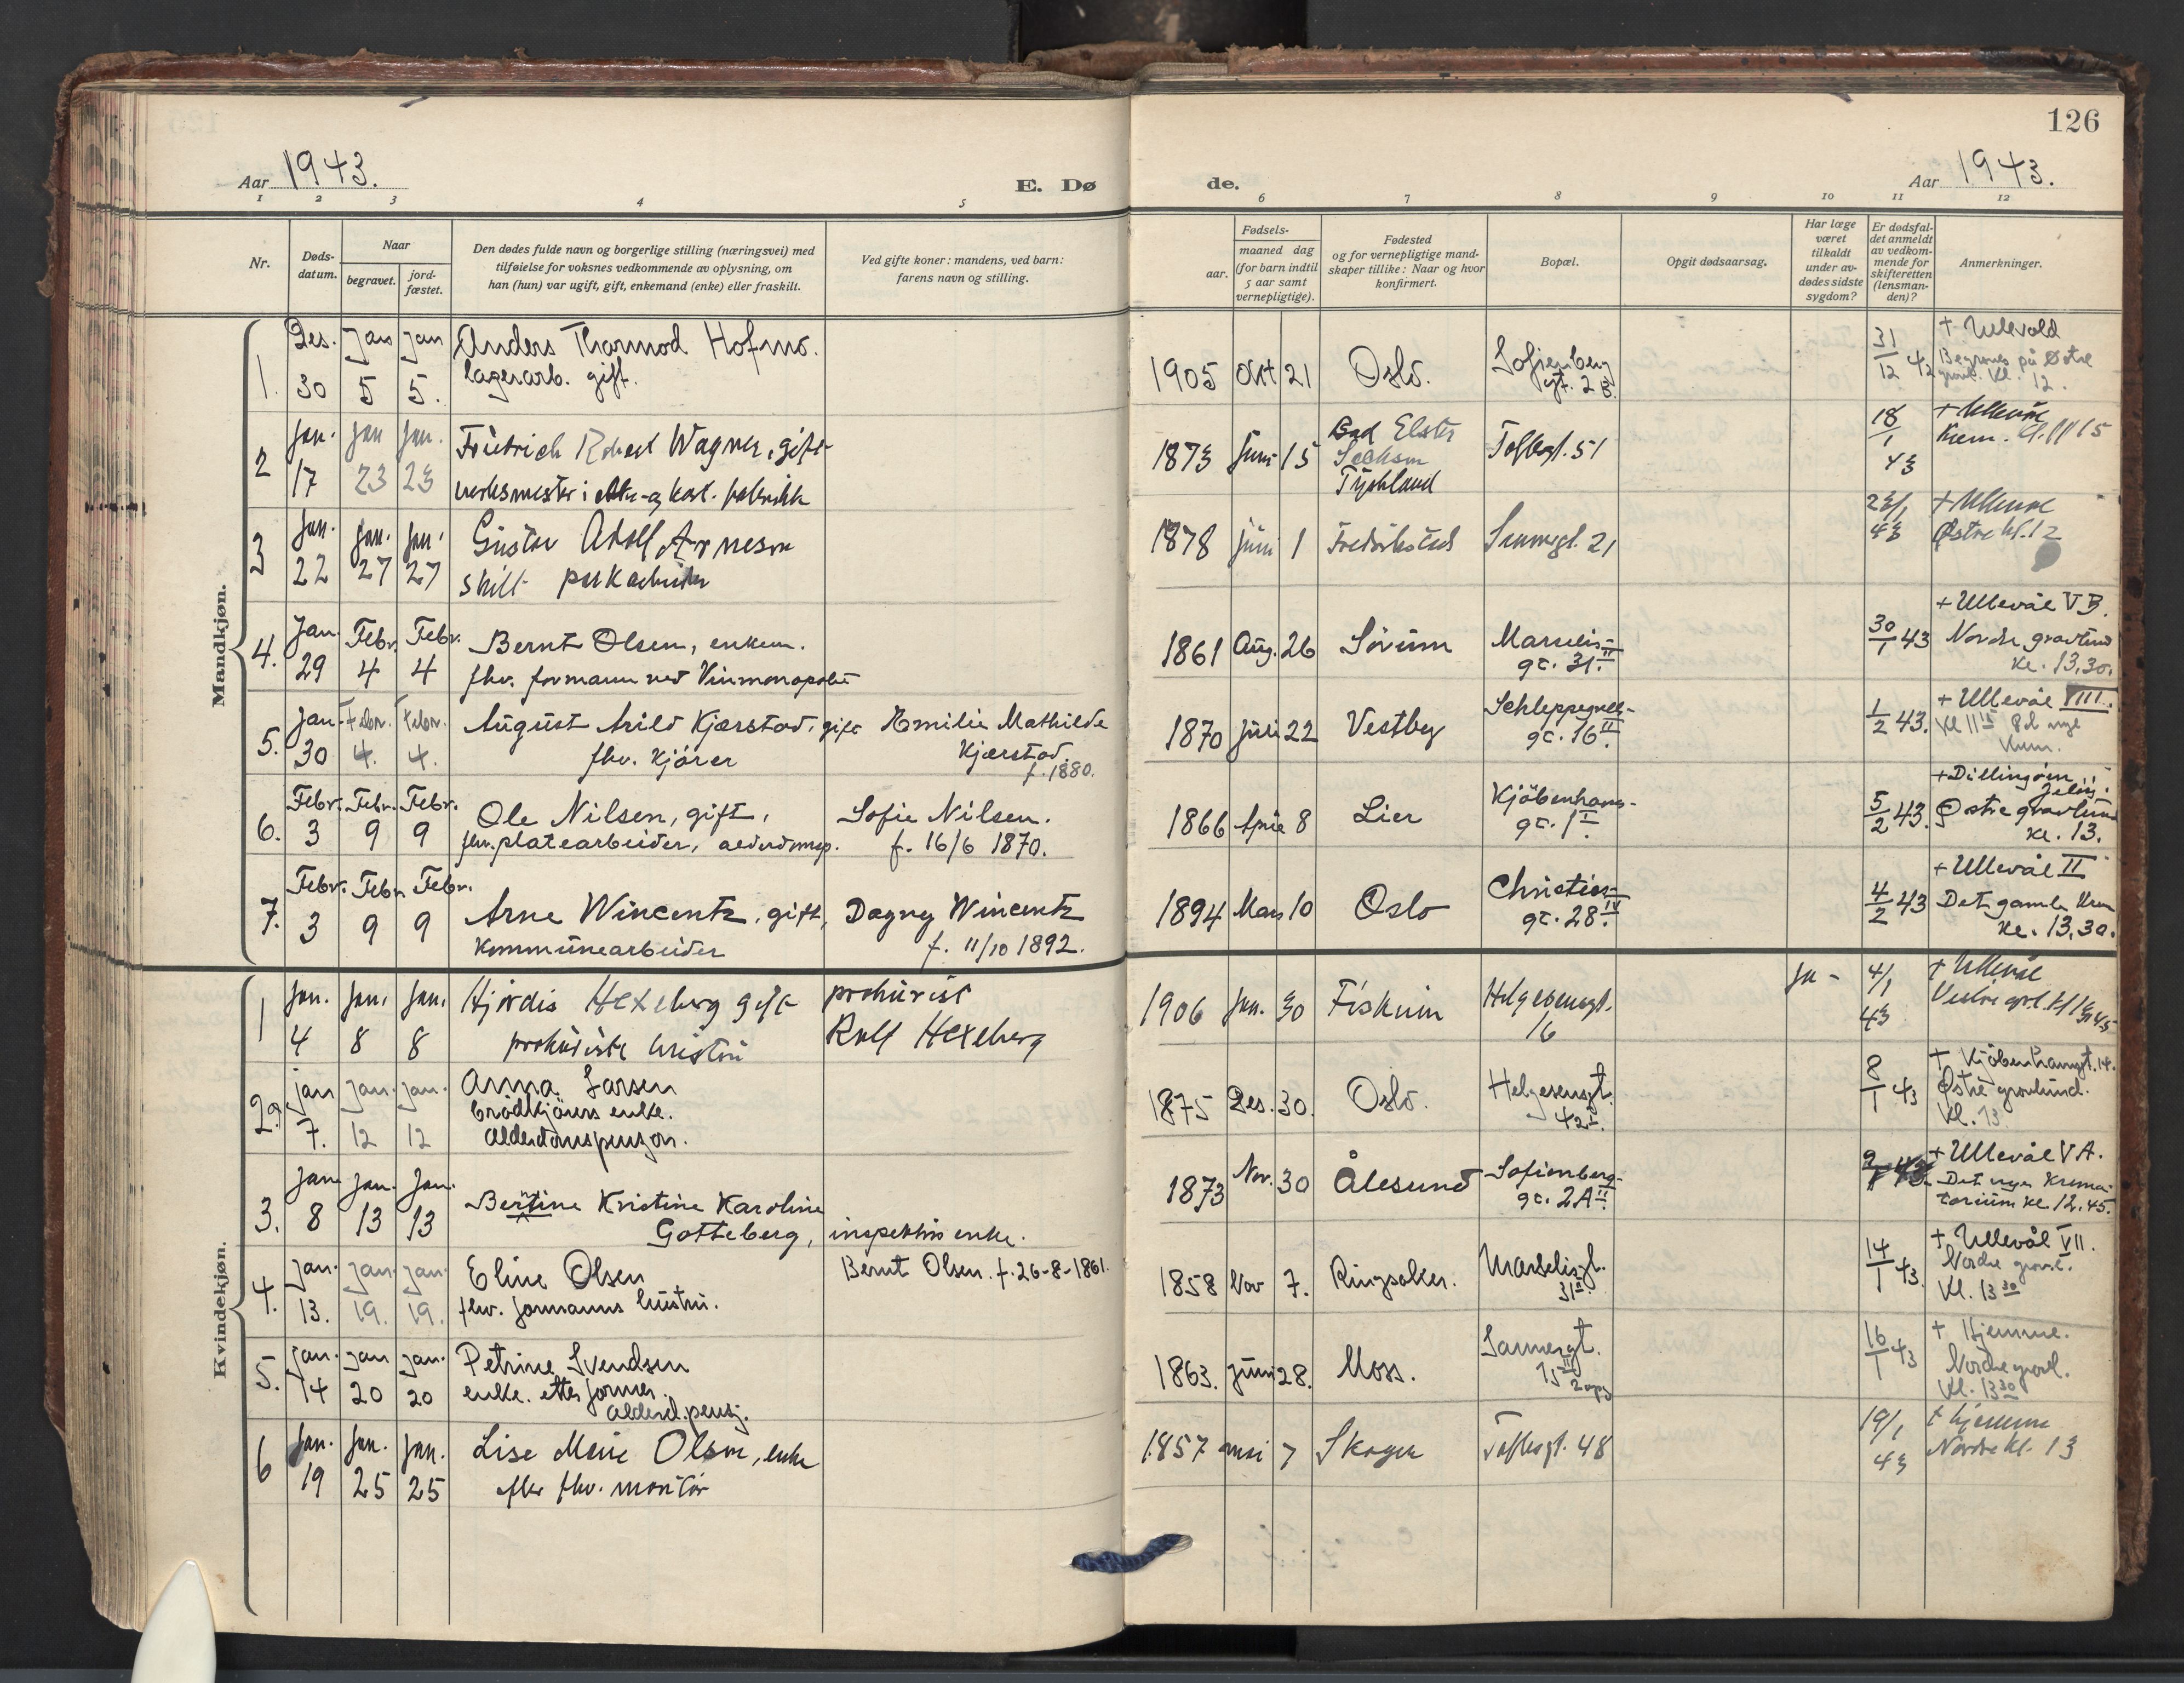 126
Aar 1943.
E. Dø
de.
Aar 1943.
1 2 3 4 5 6 7 8 9 10 11 12
Nr.
Døds-
datum.
Naar
begravet.
jord-
fæstet.
Den dødes fulde navn og borgerlige stilling (næringsvei) med
tilføielse for voksnes vedkommende av oplysning, om
han (hun) var ugift, gift, enkemand (enke) eller fraskilt.
Ved gifte koner: mandens, ved barn:
farens navn og stilling.
Fødsels-
aar.
maaned dag
(for barn indtil
5 aar samt
vernepligtige).
Fødested
og for vernepligtige mand-
skaper tillike: Naar og hvor
konfirmert.
Bopæl.
Opgit dødsaarsag.
Har læge
været
tilkaldt
under av-
dødes sidste
sygdom?
Er dødsfal-
det anmeldt
av vedkom-
mende for
skifteretten
(lensman-
den)?
Anmerkninger.
Mandkjøn.
1. Des. 30 Jan 5 Jan 5.
Anders Thormod Hofmo.
lagerarb. gift.
1905 Okt 21 Oslo.
Sofienberg
gt. 2 B.
31/12 42
+ Ullevold
Begraves på Østre
gravl. Kl. 12.
2 Jan. 17 Jan 23 Jan. 23
Friedrich Robert Wagner, gift
verksmester i
1873 Juni 15
Bad Elster
Sachsen
Tyskland
Toftesgt. 51
18/1 43
+ Ullevål
Krem.
3 Jan. 22 Jan. 27 Jan. 27
Gustav Adolf Arnesen
skilt
1878 juni 1 Fredrikstad
Sannergt. 21
23/1 43
+ Ullevål
Østre kl. 12
4. Jan. 29 Febr. 4 Febr. 4
Bernt Olsen, enkem.
fhv. formann ved Vinmonopolet
1861 Aug. 26 Sørum
Marselis-
gt. 31 II
30/1 43
+ Ullevål V B.
Nordre gravlund
kl. 13,30.
5. Jan. 30 Febr. 4. Febr. 4.
August Arild Kjærstad, gift
fhv. kjører
Emilie Mathilde
Kjærstad,
f. 1880.
1870 Juli 22 Vestby
Schleppegrell-
gt. 16 II.
1/2 43.
+ Ullevål VIII.
Kl 11 15 Det nye
krem.
6. Febr. 3 Febr. 9 Febr. 9
Ole Nilsen, gift,
fhv. platearbeider,
Sofie Nilsen.
f. 16/6 1870.
1866 April 8 Lier
Kjøbenhavns-
gt. 1 I.
5/2 43.
+ Dillingøen
Jeløy.
Østre gravlund
kl. 13.
7. Febr. 3 Febr. 9 Febr. 9
Arne Wincentz, gift,
kommunearbeider
Dagny Wincentz
f. 11/10 1892.
1894 Mars 10 Oslo
Christies-
gt. 28 IV.
4/2 43
+ Ullevål II
Det gamle Krem
kl. 13,30.
Kvindekjøn.
1 Jan. 4 Jan. 8 Jan. 8
Hjørdis Hexeberg gift
prokurist
Rolf Hexeberg
1906 Jan. 30 Fiskum
Helgesensgt.
16
ja -
4/1 43
+ Ullevål
Vestre gravl. kl 13 45
2. jan 7. jan. 12 jan. 12
Anna Larsen
brødkjørers enke.
alderdomspensjon.
1875 Des. 30. Oslo.
Helgesensgt.
42 I.
8/1 43
+ Kjøbenhavngt. 14.
Østre gravlund.
Kl. 13
3. Jan 8 Jan. 13 Jan. 13
Berntine Kristine Karoline
Gotteberg, inspektørs enke.
1873 Nov. 30 Ålesund
Sofienberg-
gt. 2A II.
9/1 43.
+ Ullevål V A.
Det nye Krema-
torium kl. 12.45.
4. jan. 13. jan. 19. jan. 19.
Eline Olsen
fhv. formanns hustru.
Bernt Olsen. f. 26-8-1861.
1858 Nov 7. Ringsaker.
Marselisgt.
31 II.
14/1 43.
+ Ullevål VII.
Nordre gravl.
Kl. 13 30
5. jan. 14 jan 20 jan. 20
Petrine Svendsen
enke. etter former.
alderd. pensj.
1863. juni 28. Moss.
Sannergt.
15 III
2 opg
16/1 43
+ Hjemme.
Nordre gravl.
Kl. 13 30
6 Jan. 19 Jan. 25 Jan. 25
Lise Marie Olsen, enke
efter fhv. montør
1857 mai 7 Skoger
Toftesgt. 48
19/1 43
+ hjemme
Nordre kl. 13